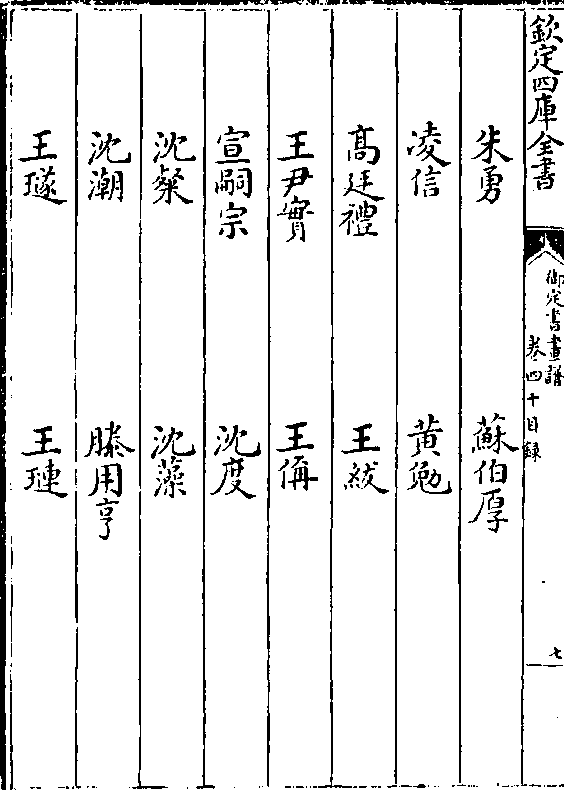 欽定四庫全書
御定書畫譜
卷四十目錄
七
朱勇 蘇伯厚
凌信 黄勉
高廷禮 王紱
王尹實 王偁
宣嗣宗 沈度
沈粲 沈藻
沈潮 滕用亨
王璲 王璉